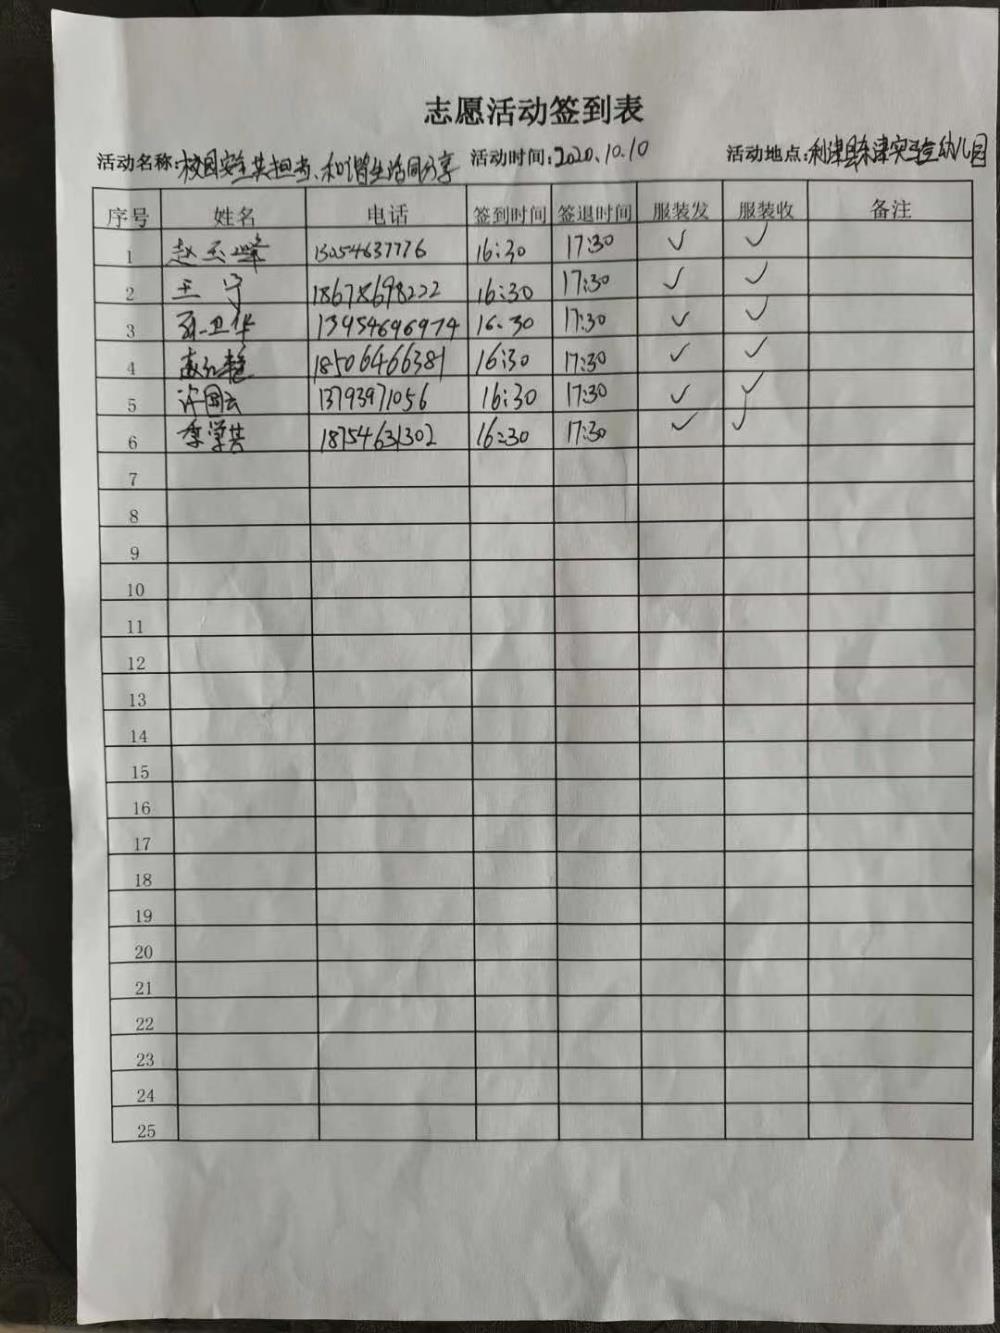 志愿活动签到表
活动名称:校园安全共担当、和谐生活同分享 活动时间:2020.10.10 活动地点:利津县东津实验幼儿园
序号 姓名 电话 签到时间 签退时间 服装发 服装收 备注
1 赵玉峰 13054637776 16:30 17:30 ✓ ✓
2 王宁 18678698222 16:30 17:30 ✓ ✓
3 卫华 13954696974 16:30 17:30 ✓ ✓
4 18506466381 16:30 17:30 ✓ ✓
5 许国云 13793971056 16:30 17:30 ✓ ✓
6 李学芸 18754631302 16:30 17:30 ✓ ✓
7
8
9
10
11
12
13
14
15
16
17
18
19
20
21
22
23
24
25